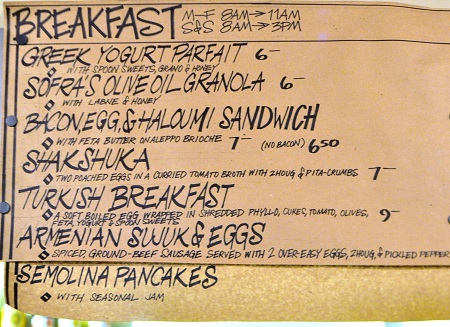 BREAKFAST M-F 8AM→11AM
S&S 8AM→3PM
GREEK YOGURT PARFAIT 6-
WITH SPOON SWEETS, GRANO & HONEY
SOFRA'S OLIVE OIL GRANOLA 6-
WITH LABNE & HONEY
BACON, EGG, & HALOUMI SANDWICH
WITH FETA BUTTER ON ALEPPO BRIOCHE 7- (NO BACON) 6.50
SHAKSHUKA
TWO POACHED EGGS IN A CURRIED TOMATO BROTH WITH ZHOUG & PITA-CRUMBS 7-
TURKISH BREAKFAST
A SOFT BOILED EGG WRAPPED IN SHREDDED PHYLLO, CUKES, TOMATO, OLIVES, 9-
FETA, YOGURT & SPOON SWEETS
ARMENIAN SUJUK & EGGS
SPICED, GROUND-BEEF SAUSAGE SERVED WITH 2 OVER-EASY EGGS, ZHOUG, & PICKLED PEPPER
SEMOLINA PANCAKES
WITH SEASONAL JAM